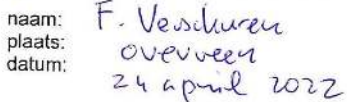 naam: F. Verschuren
plaats: overveen
datum: 24 april 2022